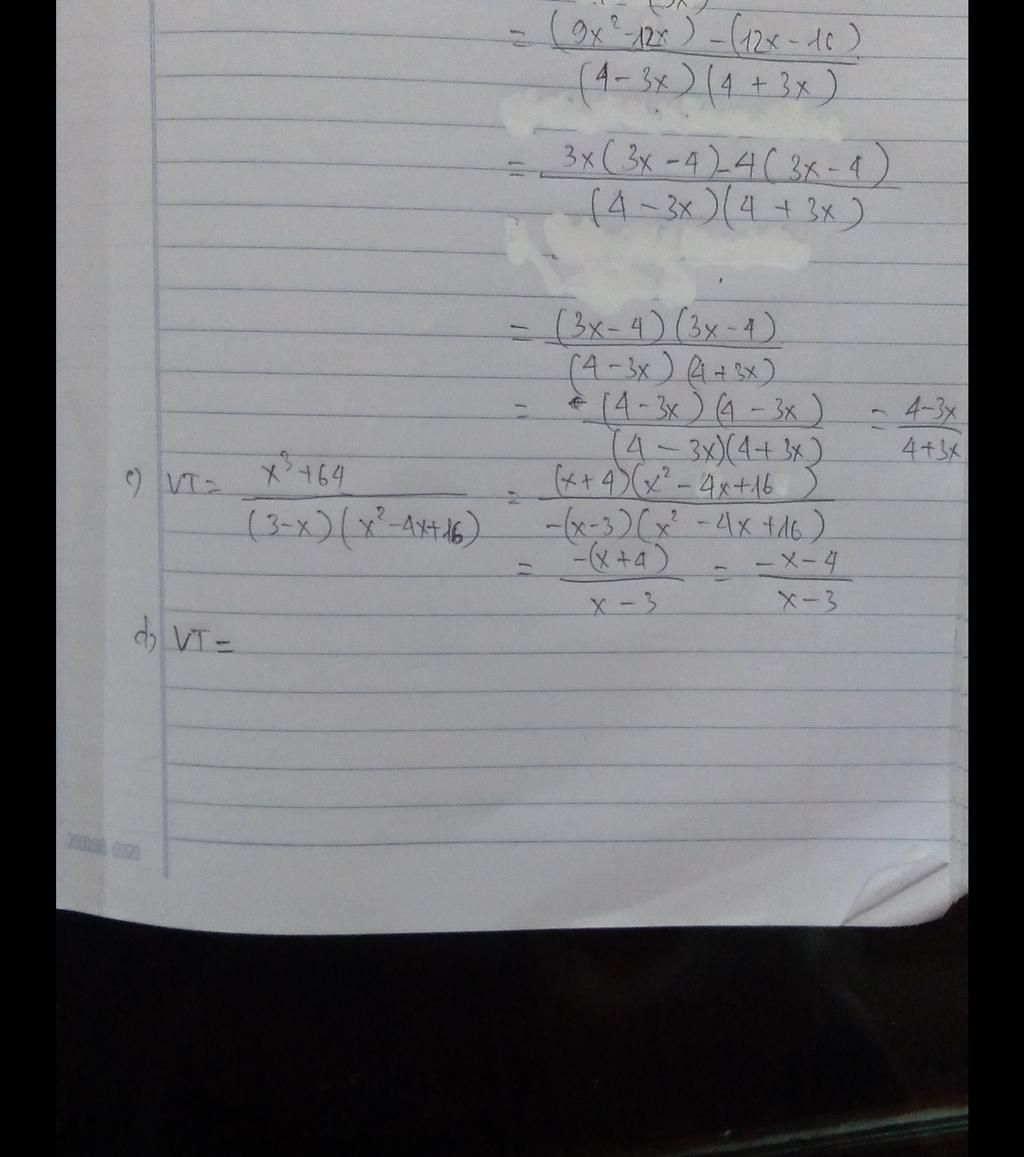 = (9x² - 12x) - (12x - 16) / (4 - 3x)(4 + 3x)
= 3x(3x - 4) - 4(3x - 4) / (4 - 3x)(4 + 3x)
= (3x - 4)(3x - 4) / (4 - 3x)(4 + 3x)
= (4 - 3x)(4 - 3x) / (4 - 3x)(4 + 3x) = 4 - 3x / 4 + 3x
c) VT = x³ + 64 / (3 - x)(x² - 4x + 16) = (x + 4)(x² - 4x + 16) / -(x - 3)(x² - 4x + 16)
= -(x + 4) / x - 3 = -x - 4 / x - 3
d) VT =